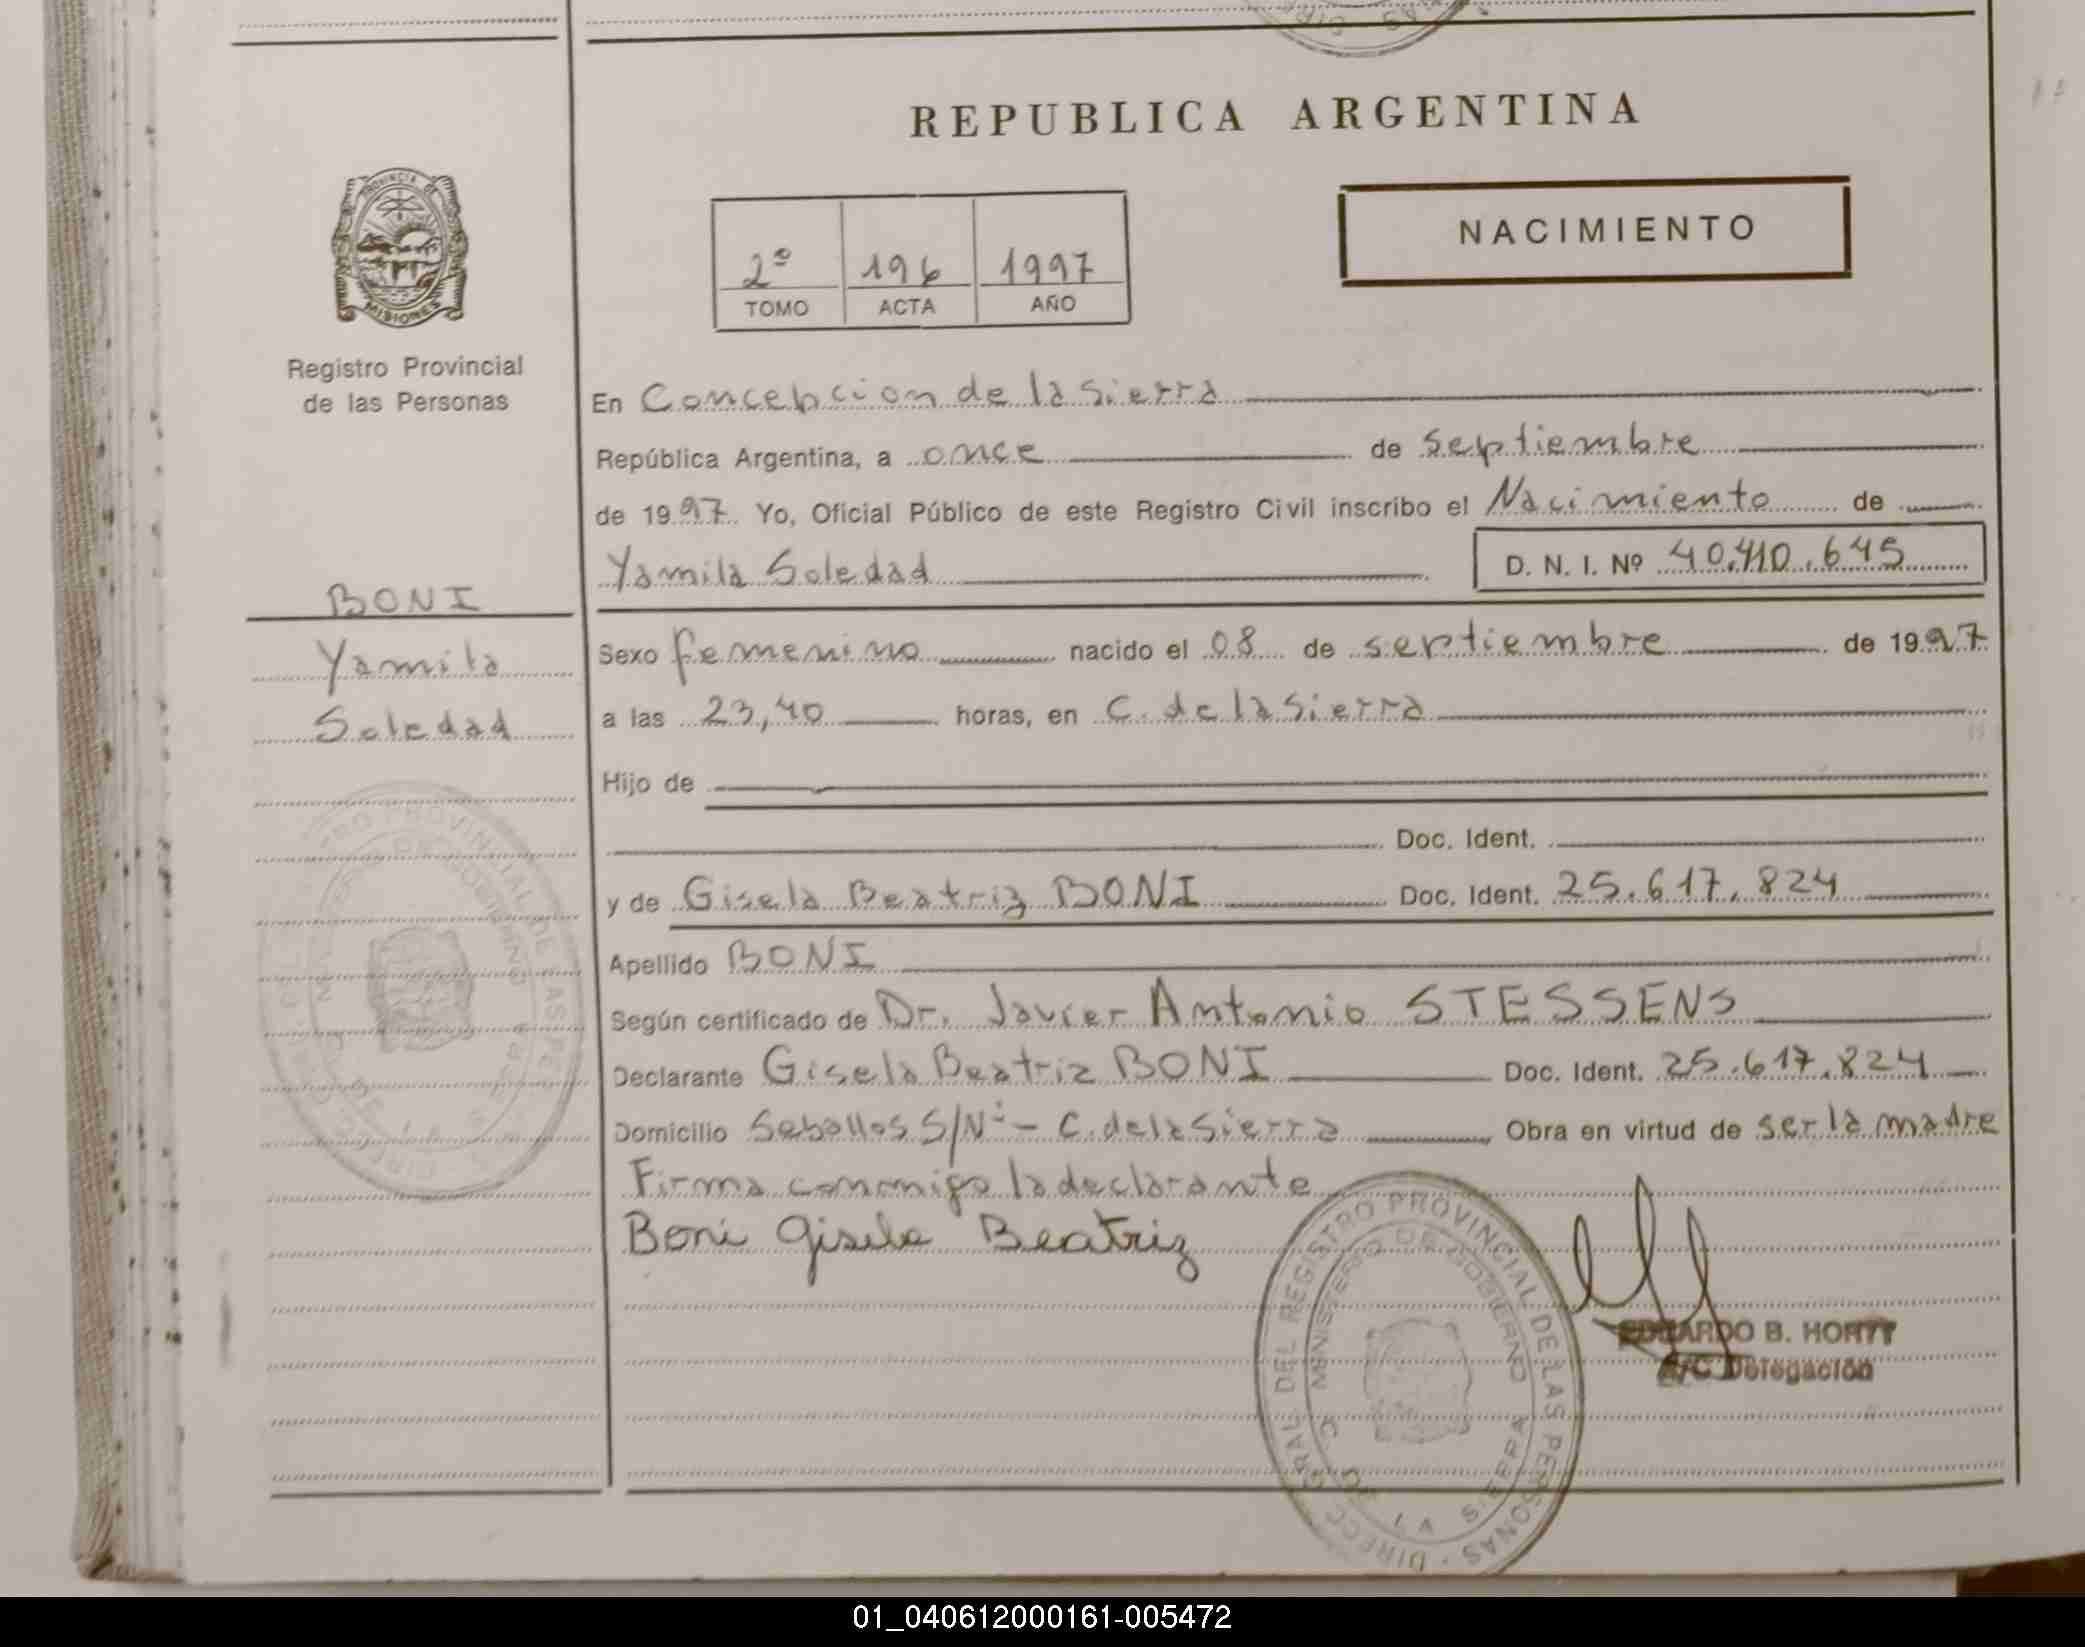 REPUBLICA ARGENTINA
NACIMIENTO
2º 196 1997
TOMO ACTA AÑO
PROVINCIA DE
MISIONES
Registro Provincial
de las Personas
BONI
Yamila
Soledad
En Concepcion de la Sierra
República Argentina, a once de septiembre
de 1997 Yo, Oficial Público de este Registro Civil inscribo el Nacimiento de
Yamila Soledad D. N. I. Nº 40.410.645
Sexo femenino nacido el 08 de septiembre de 1997
a las 23,40 horas, en C. de la Sierra
Hijo de
Doc. Ident.
y de Gisela Beatriz BONI Doc. Ident. 25.617.824
Apellido BONI
Según certificado de Dr. Javier Antonio STESSENS
Declarante Gisela Beatriz BONI Doc. Ident. 25.617.824
Domicilio S/Nº - C. de la Sierra Obra en virtud de ser la madre
Firma conmigo la declarante
Boni Gisela Beatriz
DIRECC. GRAL. DEL REGISTRO PROVINCIAL DE LAS PERSONAS
MINISTERIO DE GOBIERNO
C. DE LA SIERRA
EDUARDO B. HORTT
A/C Delegación
01_040612000161-005472